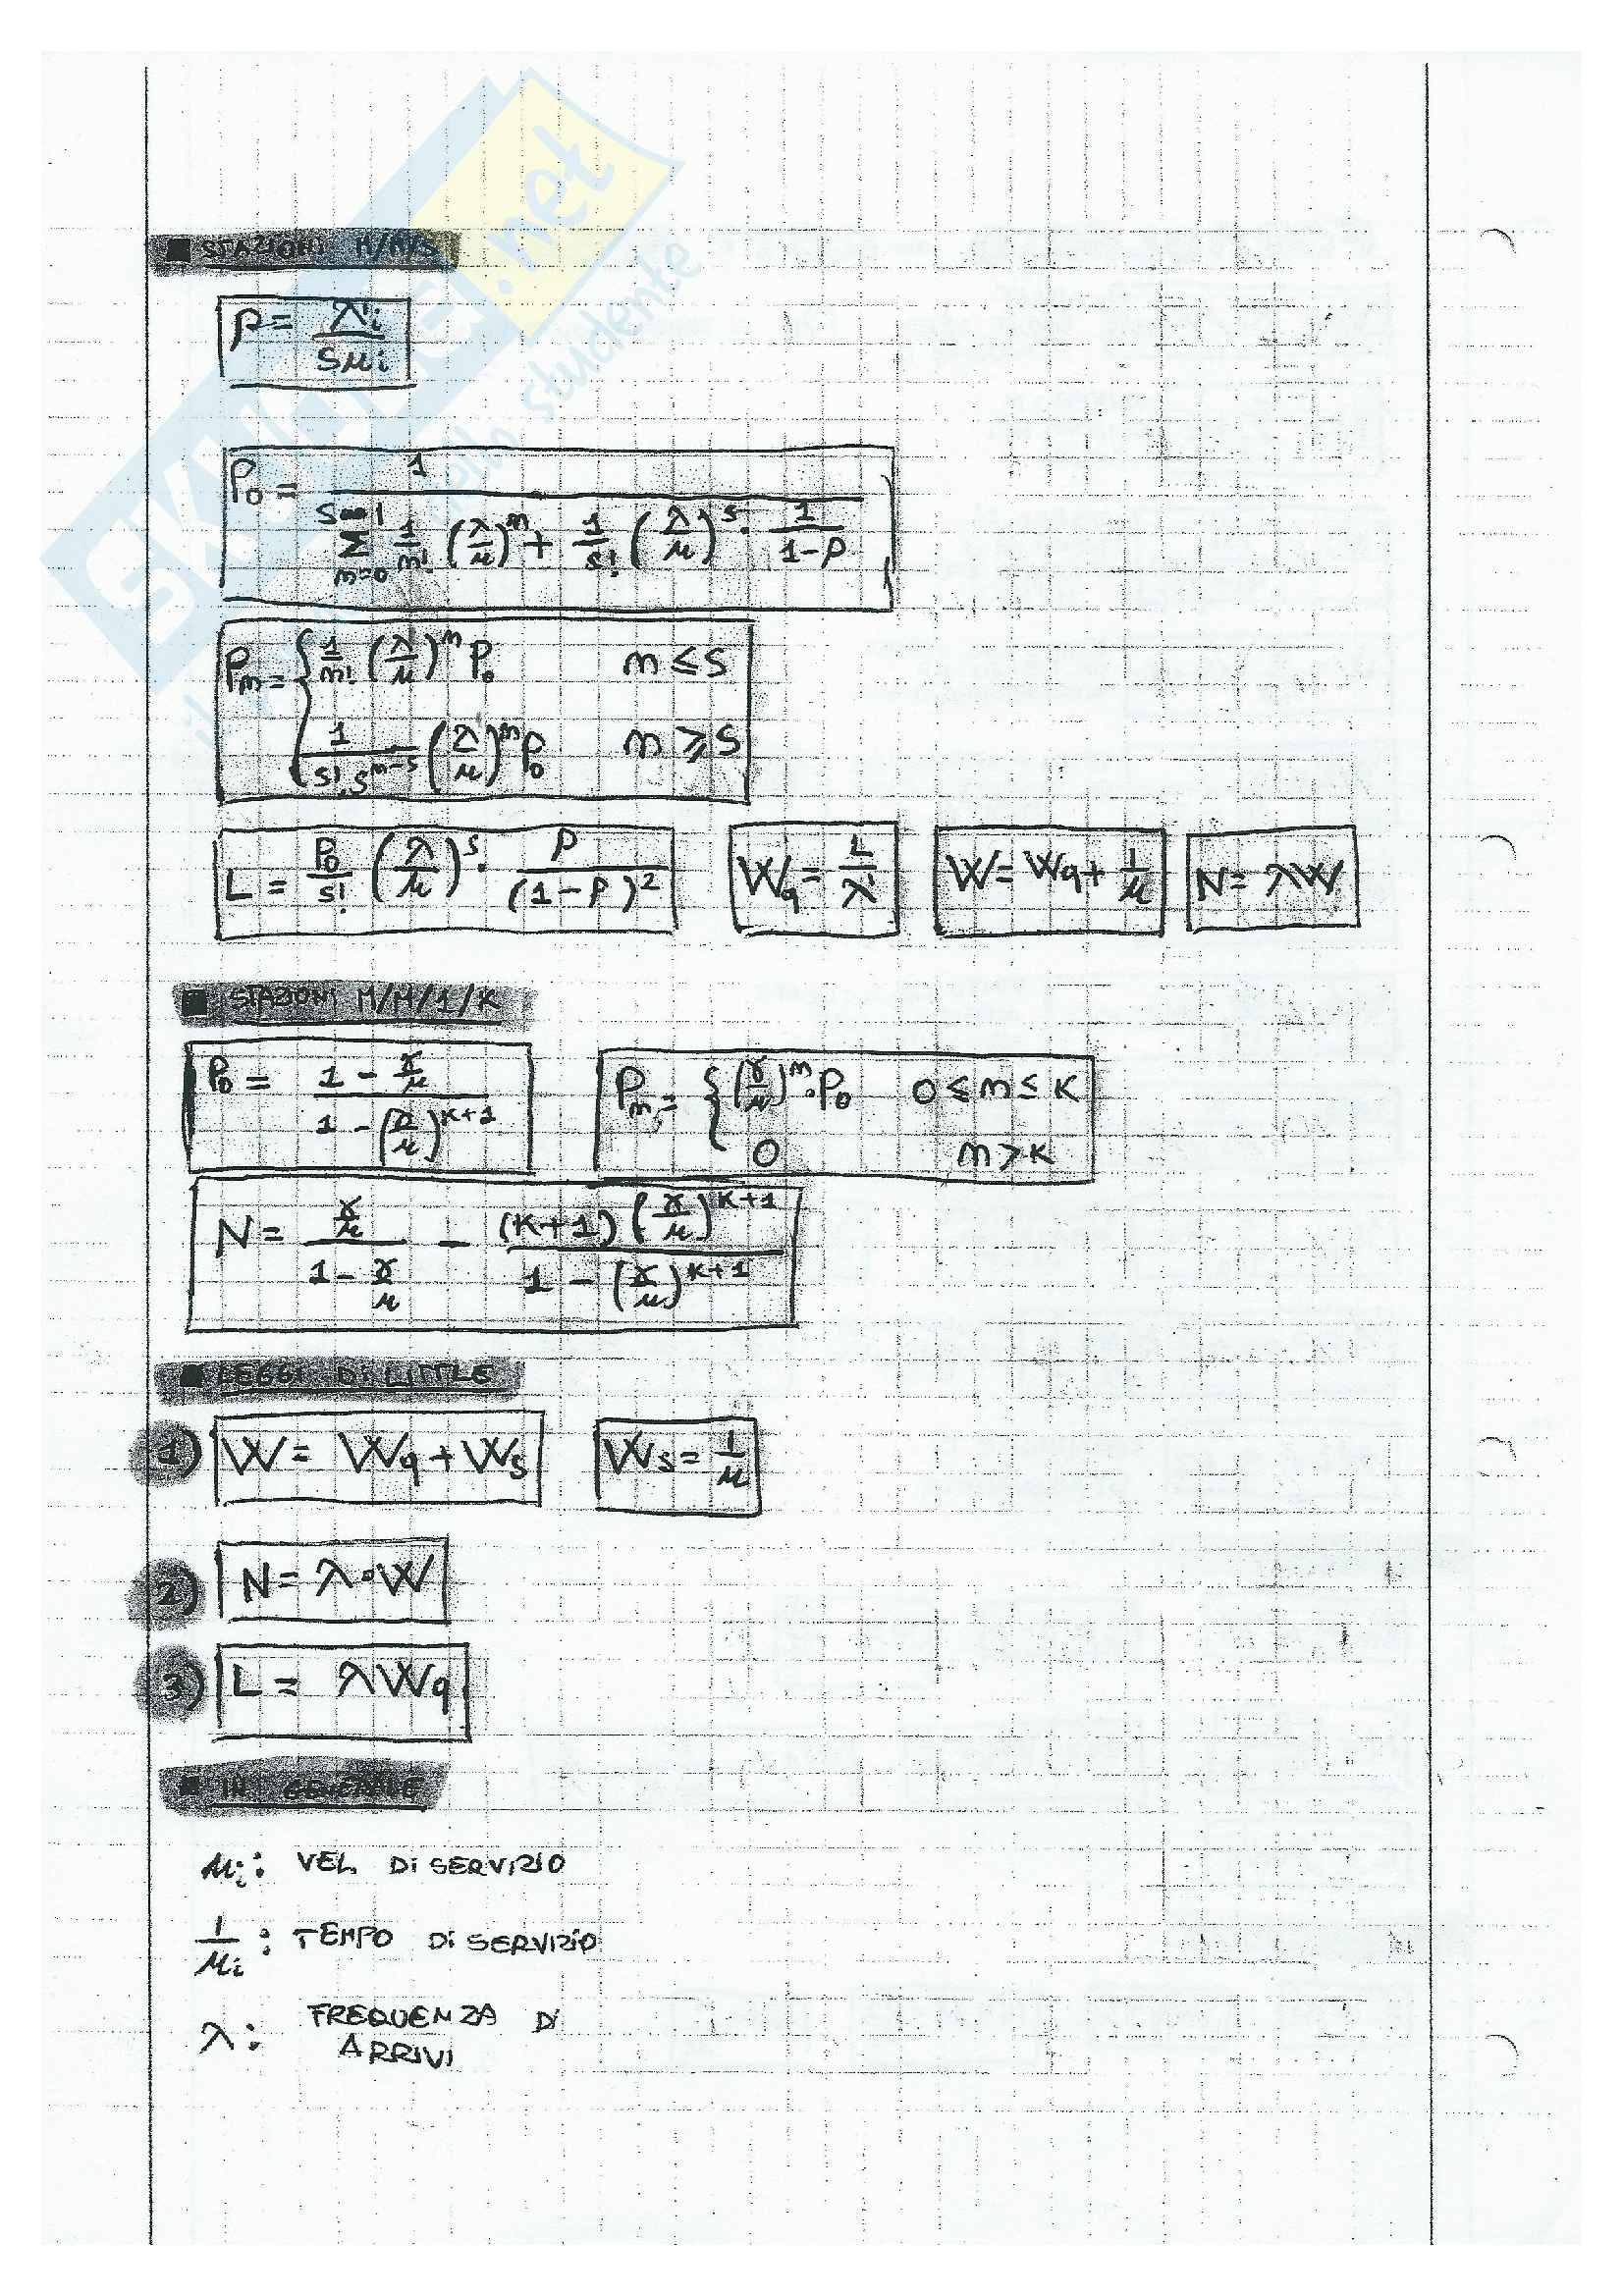 ■ STAZIONI M/M/S
ρ = λi / Sμi
P0 = 1 / ( Σ_{m=0}^{S-1} 1/m! (λ/μ)^m + 1/s! (λ/μ)^s · 1/(1-ρ) )
Pm = { 1/m! (λ/μ)^m P0   m ≤ S
1/(s! · s^{m-s}) (λ/μ)^m P0   m ≥ S
L = P0/s! (λ/μ)^s · ρ/(1-ρ)^2   Wq = L/λ   W = Wq + 1/μ   N = λW
■ STAZIONI M/M/1/K
P0 = (1 - γ/μ) / (1 - (γ/μ)^{K+1})   Pm = { (γ/μ)^m · P0   0 ≤ m ≤ K
0   m > K
N = (γ/μ) / (1 - γ/μ) - (K+1)(γ/μ)^{K+1} / (1 - (γ/μ)^{K+1})
■ LEGGI Di LITTLE
1) W = Wq + Ws   Ws = 1/μ
2) N = λ · W
3) L = λWq
■ IN GENERALE
μi: VEL. Di SERVIZIO
1/μi : TEMPO Di SERVIZIO
λ: FREQUENZA Di
ARRIVI
SKUOLA.net
il paradiso dello studente